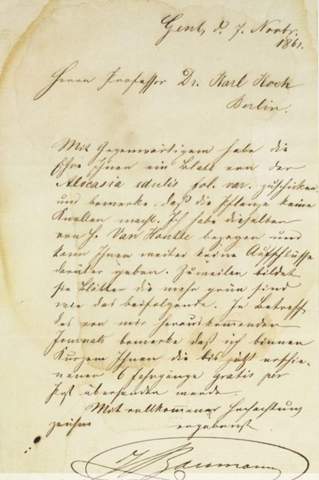 Gent, d. 7. Novbr.
1861.
Herrn Professor Dr. Karl Koch
Berlin.
Mit Gegenwärtigem habe die
Ehre Ihnen ein Blatt von der
Alocasia edulis fol. var. zuschicken
und bemerke, daß die Pflanze keine
Knollen macht. Ich habe dieselben
von H. Van Houtte bezogen und
kann Ihnen weiter keine Aufschlüsse
darüber geben. Zuweilen bildet
sie Blätter die mehr grün sind
wie das beifolgende. In Betreff
des von mir herauskommenden
Journals bemerke daß ich binnen
Kurzem Ihnen die bis jetzt erschie-
nenen 6 Jahrgänge gratis per
Post übersenden werde.
Mit vollkommener Hochachtung
zeichne ergebenst
Baumann